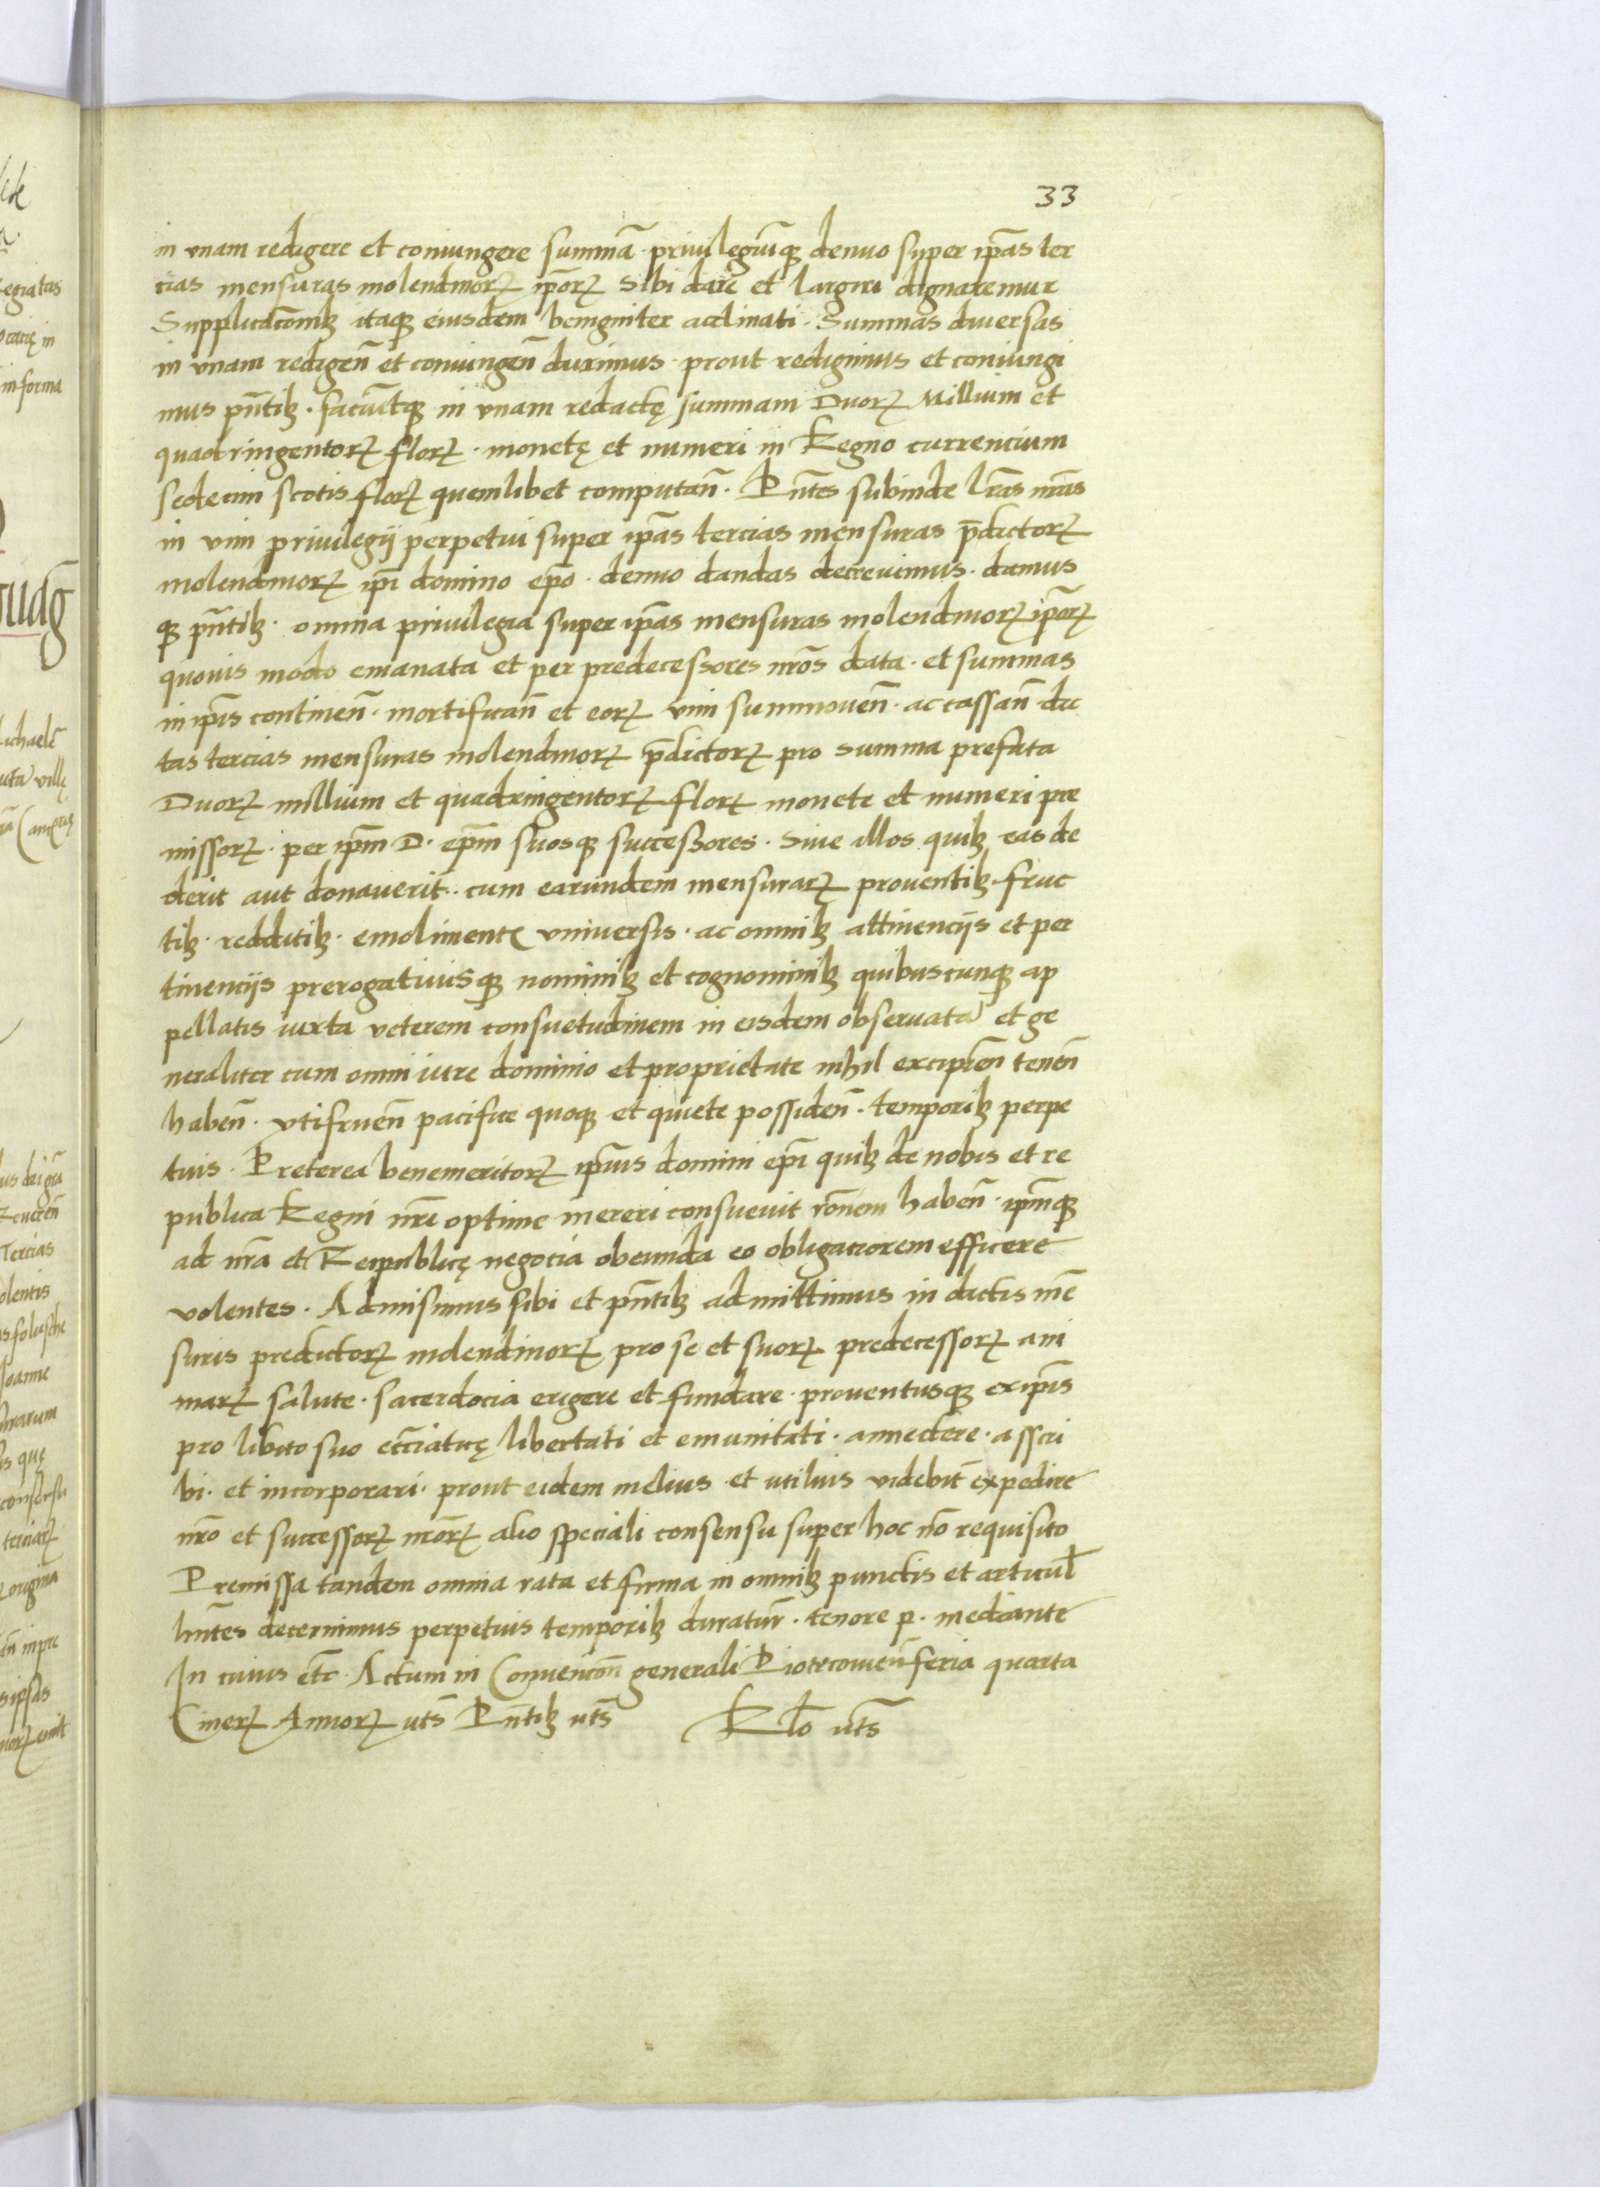 33
in vnam redigere et coniungere summã · priuilegiũqꝫ denuo super ip̃as ter
cias mensuras molendinorꝫ ip̃orꝫ sibi dare et largiri dignaremur
Supplicac̃onibꝫ itaqꝫ eiusdem benigniter acclinati · Summas diuersas
in vnam redigeñ et coniungeñ duximus · prout redigimus et coniungi
mus pñtibꝫ · facimusqꝫ in vnam redactę summam Duorꝫ Millium et
quadringentorꝫ florꝫ · monetę et numeri in Regno currencium
sedecim scotis florꝫ quemlibet computañ · Pñtes subinde lr̃as nr̃as
in vim priuilegij perpetui super ip̃as tercias mensuras p̃dictorꝫ
molendinorꝫ ip̃i domino ep̃o · denuo dandas decreuimus · damus
qꝫ pñtibꝫ · omnia priuilegia super ip̃as mensuras molendinorꝫ ip̃orꝫ
quouis modo emanata et per predecessores nr̃os data · et summas
in ip̃is contineñ · mortificañ et eorꝫ vim summoueñ · ac cassañ · dic
tas tercias mensuras molendinorꝫ p̃dictorꝫ pro summa prefata
Duorꝫ millium et quadringentorꝫ florꝫ monete et numeri pre
missorꝫ · per ip̃m D · ep̃m suosqꝫ successores · Siue illos quibꝫ eas de
derit aut donauerit · cum earundem mensurarꝫ prouentibꝫ · fruc
tibꝫ · redditibꝫ · emolimentꝭ vniuersis · ac omnibꝫ attinencijs et per
tinencijs prerogatiuisqꝫ nominibꝫ et cognominibꝫ quibuscunqꝫ ap
pellatis iuxta veterem consuetudinem in eisdem obseruatã et ge
neraliter cum omni iure dominio et proprietate nihil excipieñ teneñ
habeñ · vtifrueñ pacifice quoqꝫ et quiete possideñ · temporibꝫ perpe
tuis · Preterea benemeritorꝫ ip̃ius domini ep̃i quibꝫ de nobis et re
publica Regni nr̃i optime mereri consueuit rõnem habeñ · ip̃mqꝫ
ad nr̃a et Reipublicę negocia obeunda eo obligatiorem efficere
volentes · Admisimus sibi et pñtibꝫ admittimus in dictis mẽ
suris predictorꝫ molendinorꝫ pro se et suorꝫ predecessorꝫ ani
marꝫ salute · sacerdocia erigere et fundare · prouentusqꝫ ex ip̃is
pro libito suo ecc̃iaticę libertati et emunitati · annectere · asscri
bi · et incorporari · prout eidem melius et utilius videbit̃ expedire
nr̃o et successorꝫ nr̃orꝫ alio speciali consensu super hoc nõ requisito
Premissa tandem omnia rata et firma in omnibꝫ punctis et articul̃
hñtes decernimus perpetuis temporibꝫ duratur̃ · tenore p · mediante
In cuius etc̃ · Actum in Conuenc̃oñ generali Piotrcouieñ feria quarta
Cinerꝫ Annorꝫ utˢ Pñtibꝫ utˢ Rl̃o utˢ